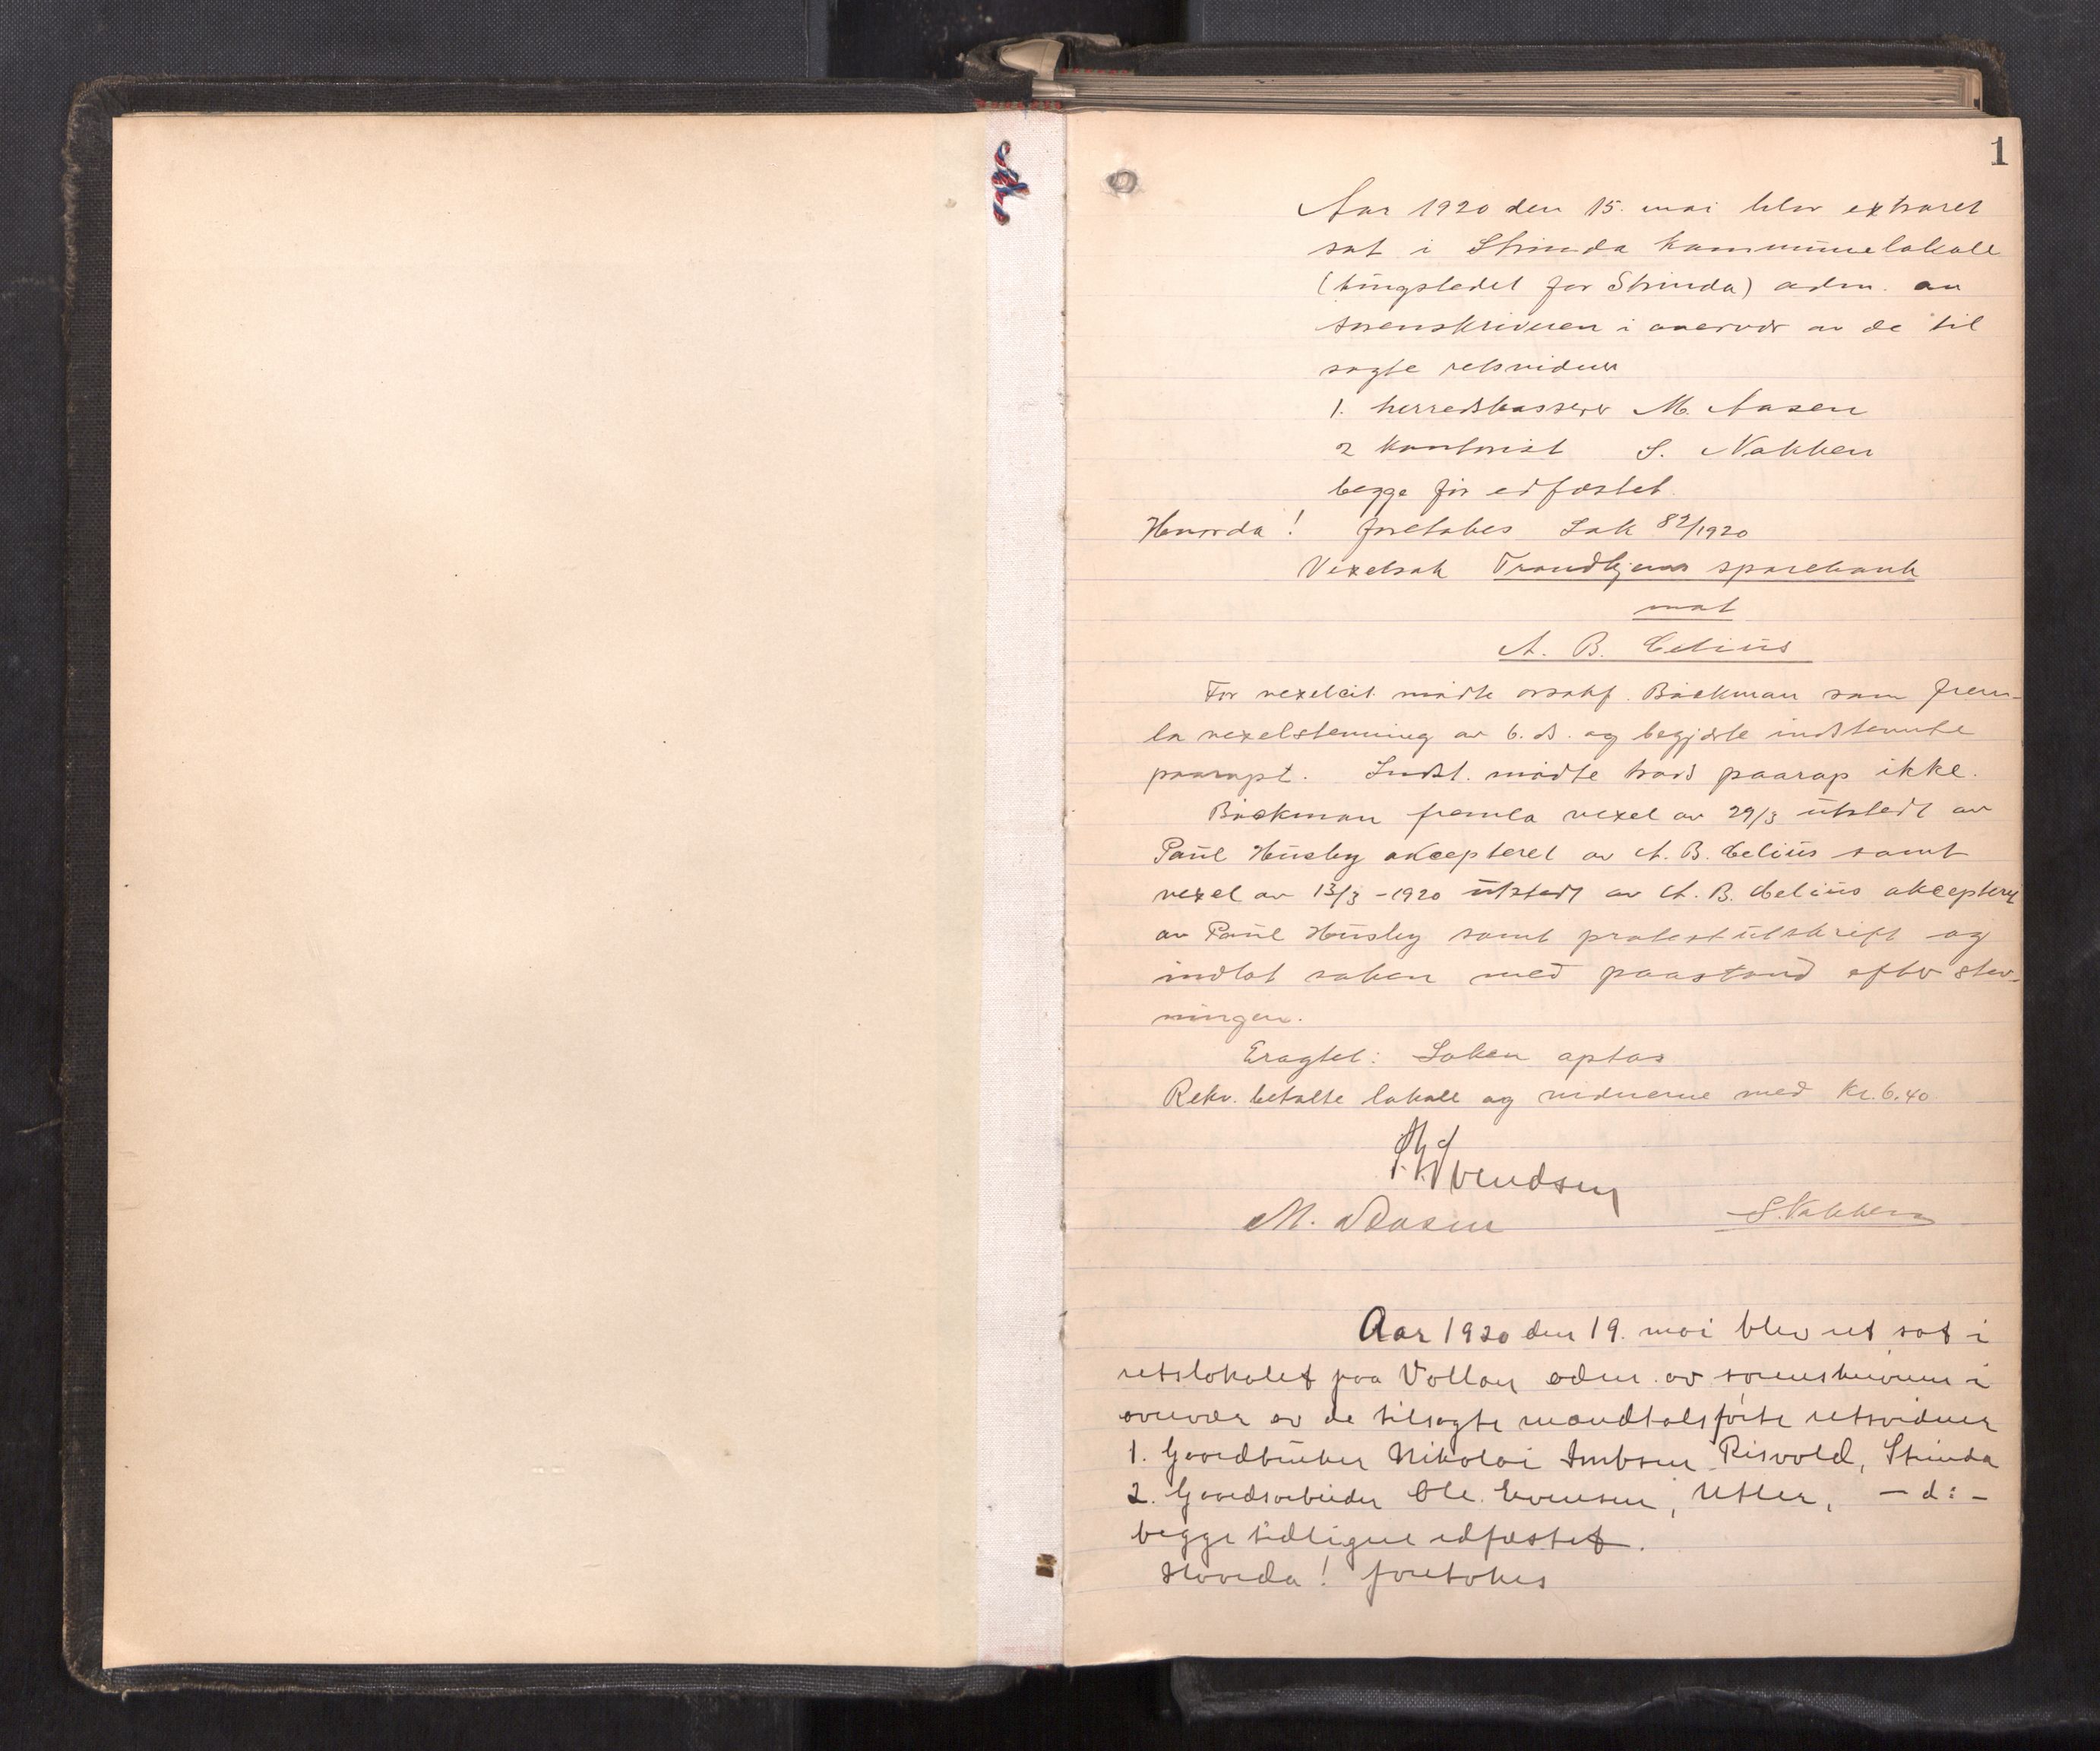 1
Aar 1920 den 15. mai blev extraret
sat i Strinda kommunelokale
(tingstedet for Strinda) adm. av
sorenskriveren i overvær av de til
sagte retsvidner
1. herredskasserer M. Aasen
2 kontorist S. Nakken
begge før edfæstet.
Hvorda! foretokes Sak 82/1920
Vexelsak Trondhjems sparebank
mot
A. B. Celius
For vexelcit. mødte orsakf. Bäckman som frem-
la vexelstevning av 6. ds. og begjærte indstevnte
paaropt. Indst. mødte trods paarop ikke.
Bäckman fremla vexel av 29/3 utstedt av
Paul Husby akcepteret av A. B. Celius samt
vexel av 13/3 - 1920 utstedt av A. B. Celius akcepteret
av Paul Husby samt protestutskrift og
indlot saken med paastand efter stev-
ningen.
Eragtet: Saken optas
Rekv. betalte lokale og vidnerne med Kr. 6.40
Svendsen
M. Aasen S. Nakken
Aar 1920 den 19. mai blev ret sat i
retslokalet paa Vollan adm. av sorenskriveren i
overvær av de tilsagte mandtalsførte retsvidner
1. Gaardbruker Nikolai Imbsen Risvold, Strinda
2. Gaardsarbeider Ole Evensen, Utler, - d: -
begge tidligere edfæstet.
Hvorda! foretokes